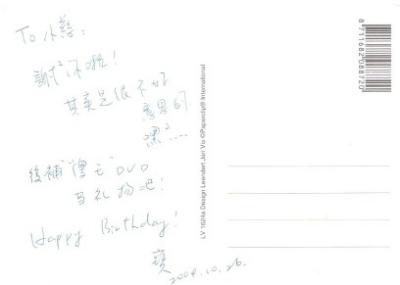 To 小慧:
謝謝你啦!
其實是很不好
意思的
嘿²....
後補"僧王"DVD
当礼物吧!
Happy Birthday!
寶
2004.10.26.
LV 1624a Design Leendert Jan Vis ©Paperclip® International
8711682088720